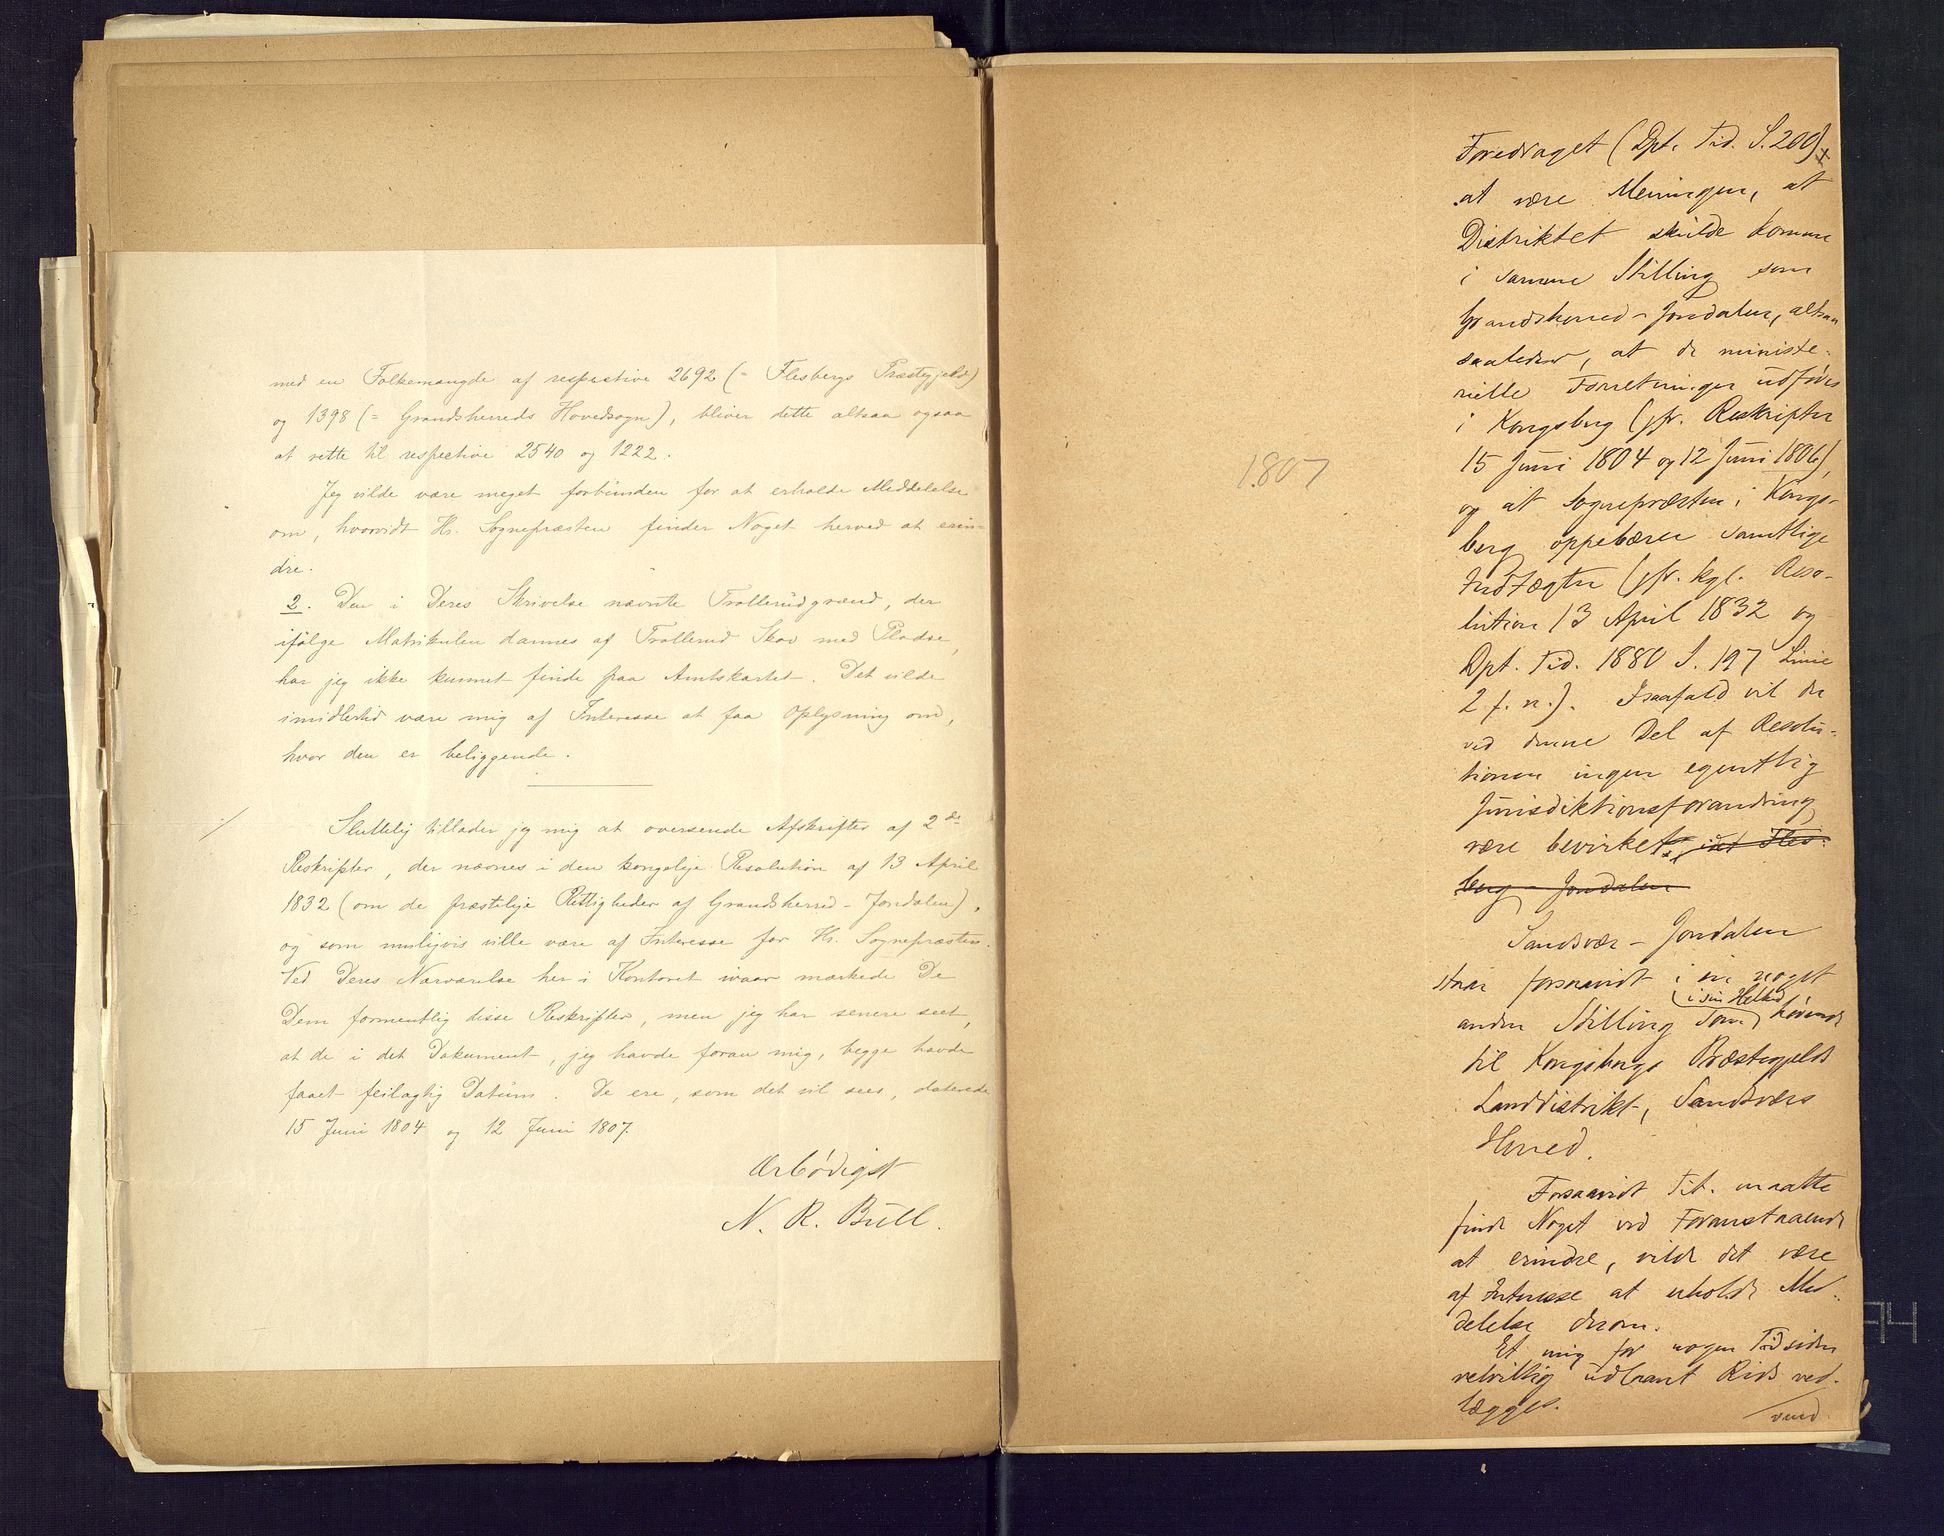 med en Folkemængde af respective 2692 (= Flesbergs Præstegjeld)
og 1398 (= Grandsherreds Hovedsogn), bliver dette altsaa ogsaa
at rette til respective 2540 og 1222.
Jeg vilde være meget forbunden for at erholde Meddelelse
om, hvorvidt Hr. Sognepræsten finder Noget herved at erin-
dre.
2. Den i Deres Skrivelse nævnte Trollerudgrænd, der
ifølge Matrikulen dannes af Trollerud Skov med Pladse,
har jeg ikke kunnet finde paa Amtskartet. Det vilde
imidlertid være mig af Interesse at faa Oplysning om,
hvor den er beliggende.
Sluttelig tillader jeg mig at oversende Afskrifter af 2de
Reskripter, der nævnes i den kongelige Resolution af 13 April
1832 (om de præstelige Rettigheder af Grandsherred-Jondalen),
og som muligvis ville være af Interesse for Hr. Sognepræsten.
Ved Deres Nærværelse her i Kontoret ivaar mærkede De
Dem formentlig disse Reskripter, men jeg har senere seet,
at de i det Dokument, jeg havde foran mig, begge havde
faaet feilagtig Datum. De ere, som det vil sees, daterede
15 Juni 1804 og 12 Juni 1807.
Ærbødigst
N. R. Bull.
1807
Foredraget (Dpt. Tid. S. 200) x
at være Meningen, at
Distriktet skulde komme
i samme Stilling som
Grandsherred-Jondalen, altsaa
saaledes, at de ministe-
rielle Forretninger udføres
i Kongsberg (jfr. Reskripter
15 Juni 1804 og 12 Juni 1806),
og at Sognepræsten i Kongs-
berg oppebærer samtlige
Indtægter (jfr. kgl. Reso-
lution 13 April 1832 og
Dpt. Tid. 1880 S. 197 Linie
2 f. n.). Isaafald vil der
ved denne Del af Resolu-
tionen ingen egentlig
Jurisdiktionsforandring
være bevirket, ut Fles-
berg-Jondalen
Sandsvær-Jondalen
staar forsaavidt i en noget
i sin Helhed
anden Stilling som hørende
til Kongsbergs Præstegjelds
Landdistrikt, Sandsværs
Herred.
Forsaavidt Tit. maatte
finde Noget ved Foranstaaende
at erindre, vilde det være
af Interesse at erholde Med-
delelse derom.
Et mig for nogen Tid siden
velvillig udlaant Rids ved-
lægges.
vend